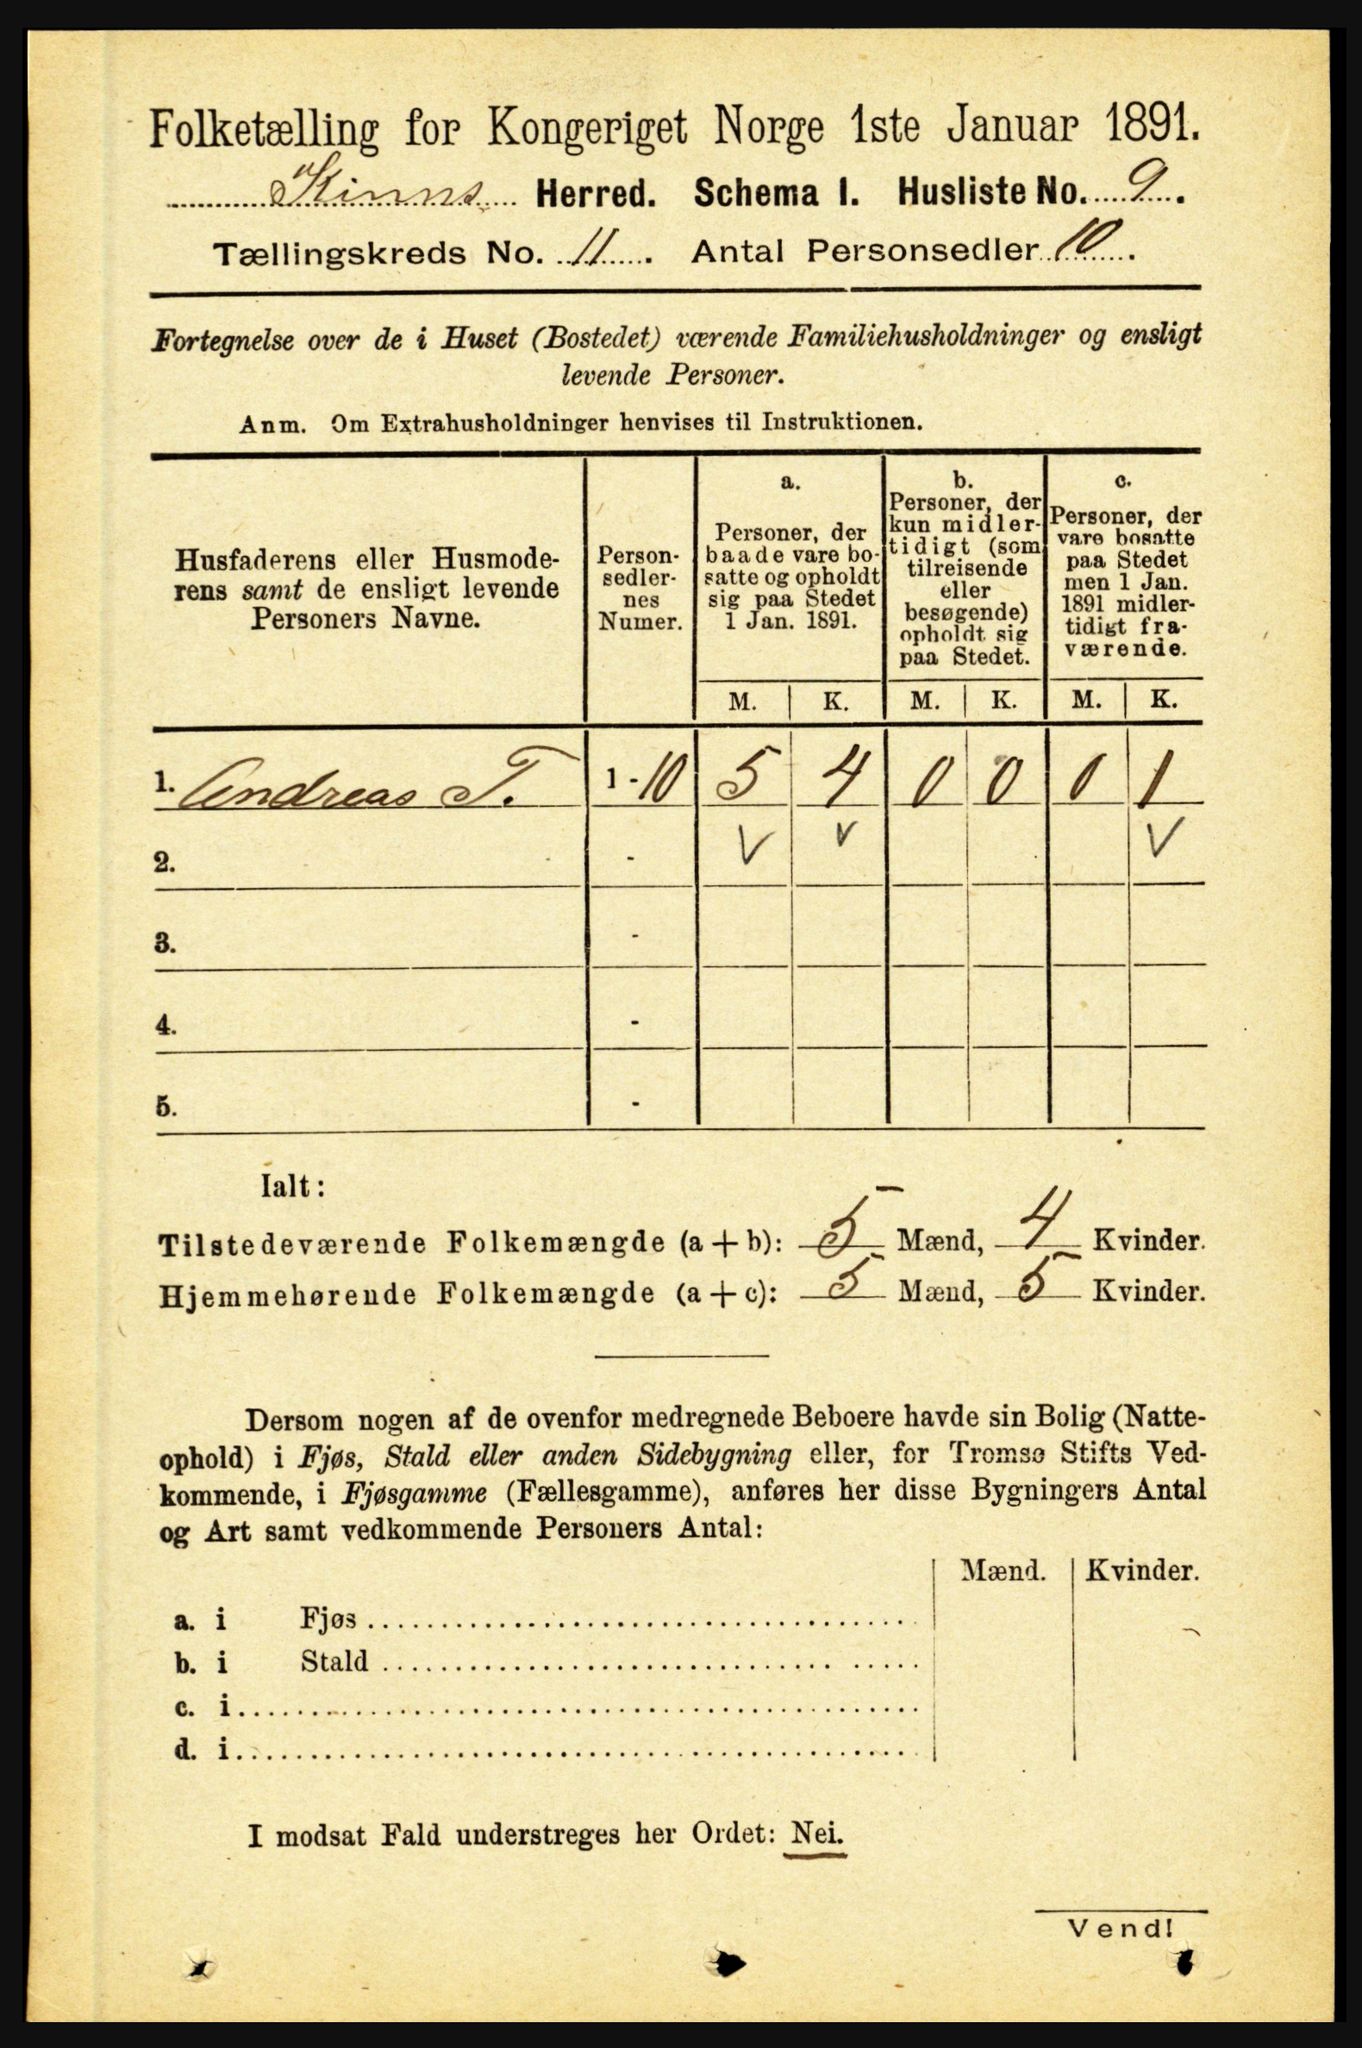 Folketælling for Kongeriget Norge 1ste Januar 1891.
Kinns Herred. Schema I. Husliste No. 9.
Tællingskreds No. 11. Antal Personsedler 10.
Fortegnelse over de i Huset (Bostedet) værende Familiehusholdninger og ensligt
levende Personer.
Anm. Om Extrahusholdninger henvises til Instruktionen.
Husfaderens eller Husmode-
rens samt de ensligt levende
Personers Navne.
Person-
sedler-
nes
Numer.
a.
Personer, der
baade vare bo-
satte og opholdt
sig paa Stedet
1 Jan. 1891.
b.
Personer, der
kun midler-
tidigt (som
tilreisende
eller
besøgende)
opholdt sig
paa Stedet.
c.
Personer, der
vare bosatte
paa Stedet
men 1 Jan.
1891 midler-
tidigt fra-
værende.
M. K. M. K. M. K.
1. Andreas T. 1-10 5 4 0 0 0 1
2. - V V V
3. -
4. -
5. -
Ialt:
Tilstedeværende Folkemængde (a + b): 5 Mænd, 4 Kvinder.
Hjemmehørende Folkemængde (a + c): 5 Mænd, 5 Kvinder.
Dersom nogen af de ovenfor medregnede Beboere havde sin Bolig (Natte-
ophold) i Fjøs, Stald eller anden Sidebygning eller, for Tromsø Stifts Ved-
kommende, i Fjøsgamme (Fællesgamme), anføres her disse Bygningers Antal
og Art samt vedkommende Personers Antal:
Mænd. Kvinder.
a. i Fjøs
b. i Stald
c. i
d. i
I modsat Fald understreges her Ordet: Nei.
Vend!